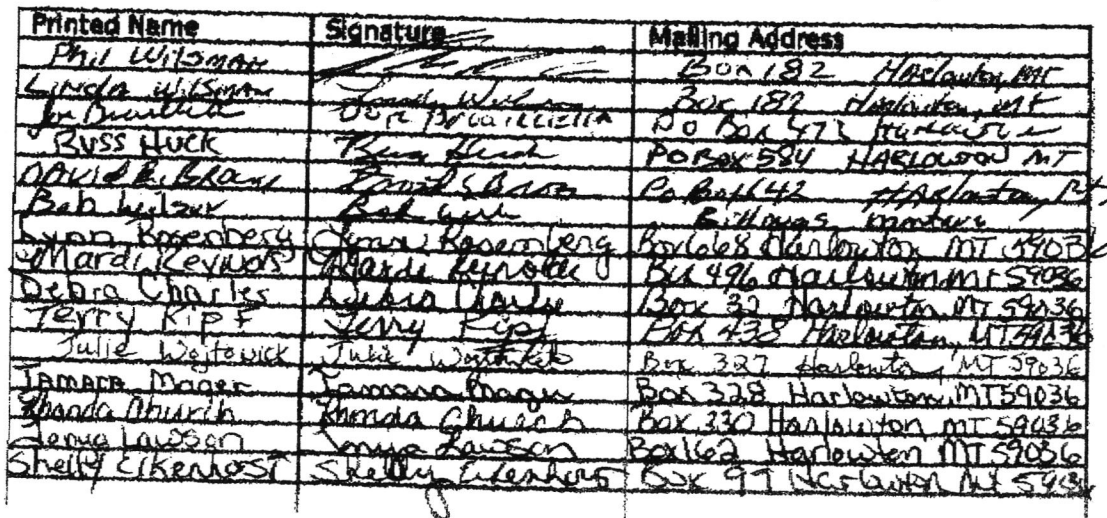 Printed Name Signature Mailing Address
Phil Wilsman Box 182 Harlowton, MT
Linda Wilsman Linda Wilsman Box 182 Harlowton, MT
PO Box 473 Harlowton
Russ Huck Russ Huck PO Box 584 HARLOWTON MT
DAVID R. BROWN David Brown Po Box 642 Harlowton, Mt
Bob Bob Billings montana
Lynn Rosenberg Lynn Rosenberg Box 668 Harlowton MT 59036
Mardi Reynolds Mardi Reynolds Box 496 Harlowton MT 59036
Debra Charles Debra Charles Box 32 Harlowton, MT 59036
Terry Kipf Terry Kipf Box 438 Harlowton, MT 59036
Julie Wojtowick Julie Wojtowick Box 327 Harlowton, MT 59036
TAMARA Mager Tamara Mager Box 328 Harlowton, MT 59036
Rhonda Church Rhonda Church Box 330 Harlowton MT 59036
Tonya Lawson Tonya Lawson Box 162 Harlowton MT 59036
Shelly Shelly Box 99 Harlowton Mt 59036